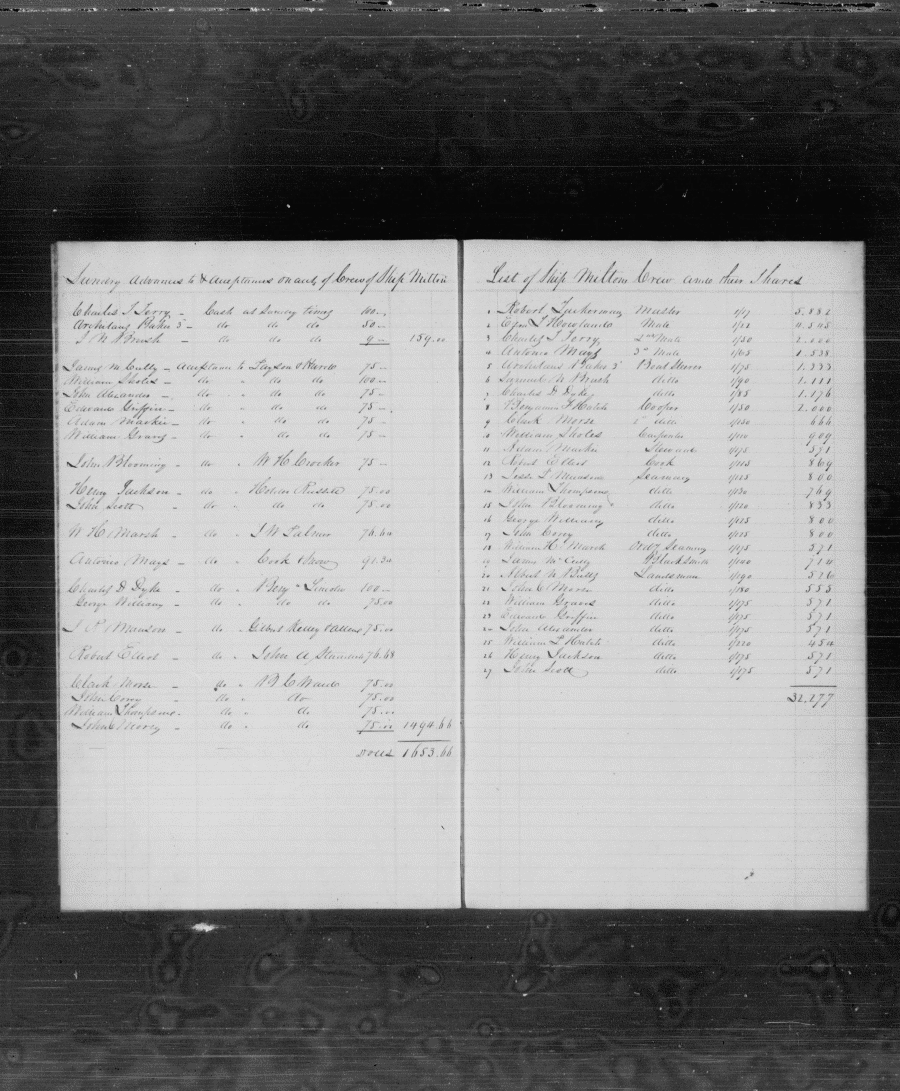 Sundry Advances to & Acceptances on acct, of Crew of Ship Milton
Charles T Terry - Cash at Sundry times 100 --
Archelaus Baker 3d - do do do 50 --
S N Brush - do do do 9 -- 159.00
James McCully - Acceptance to 75 --
William Sholes - do do do 100 --
John Alexander - do do do 75 --
Edward Griffin - do do do 75 --
Adam - do do do 75 --
William - do do do 75 --
John Blooming - do " W H Crocker 75 --
Henry Jackson - do " Holder Russell 75.00
John Scott - do do do 75.00
W H Marsh - do " J W Palmer 76.64
Antonio Mays - do " Cook & Snow 90.34
Charles D Dyke - do " Benj Lincoln 100 --
George William - do " do do 75.00
J P Munson - do " Gilbert Kelley & Allen 75.00
Robert Elliot - do " John A 76.68
Clark Morse - do " B C Ward 75.00
John Corey - do " do 75.00
William Thompson - do " do 75.00
John C - do " do 75.00 1494.66
Dolls 1653.66
List of Ship Milton Crew and their Shares
1 Robert Tuckerman Master 1/17 5.882
2 Howland Mate 1/22 4.545
3 Charles T Terry 2nd Mate 1/50 2.000
4 Antonio Mays 3d Mate 1/65 1.538
5 Archelaus Baker 3d Boat Steerer 1/75 1.333
6 Samuel N Brush ditto 1/90 1.111
7 Charles D Dyke ditto 1/85 1.176
8 Benjamin F Hatch Cooper 1/50 2.000
9 Clark Morse 2d ditto 1/150 666
10 William Sholes Carpenter 1/110 909
11 Adam Steward 1/175 571
12 Robert Elliot Cook 1/115 869
13 Jesse P Munson Seaman 1/125 800
14 William Thompson ditto 1/130 769
15 John Blooming ditto 1/120 833
16 George William ditto 1/125 800
17 John Corey ditto 1/125 800
18 William H Marsh Ordry Seaman 1/175 571
19 James McCully Blacksmith 1/140 714
20 Albert N Landsman 1/190 526
21 John C ditto 1/180 555
22 William ditto 1/175 571
23 Edward Griffin ditto 1/175 571
24 John Alexander ditto 1/175 571
25 William P Hatch ditto 1/220 454
26 Henry Jackson ditto 1/175 571
27 John Scott ditto 1/175 571
32.277